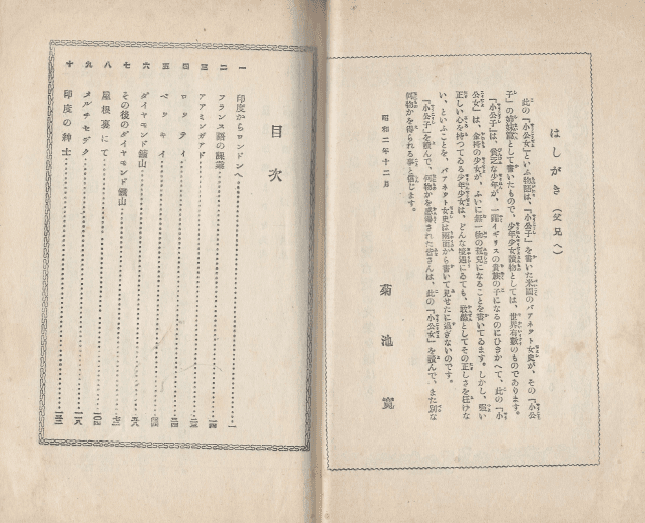 はしがき（父兄へ）
此の『小公女』といふ物語は、『小公子』を書いた米國のバアネット女史が、その『小公
子』の姉妹篇として書いたもので、少年少女讀物としては、世界有數のものであります。
『小公子』は、貧乏な少年が、一躍イギリスの貴族の子になるのにひきかへて、此の『小
公女』は、金持の少女が、ふいに無一物の孤兒になることを書いてゐます。しかし、强い
正しい心を持つてゐる少年少女は、どんな境遇にゐても、敢然としてその正しさを枉げな
い、といふことを、バアネット女史は兩面から書いて見せたに過ぎないのです。
『小公子』を讀んで、何物かを感得された皆さんは、此の『小公女』を讀んで、また別な
何物かを得られる事と信じます。
昭和二年十二月
菊池寬
目次
一 印度からロンドンへ 一
二 フランス語の課業
三 アアミンガアド
四 ロッティ
五 ベッキイ
六 ダイヤモンド鑛山
七 その後のダイヤモンド鑛山
八 屋根裏にて 一〇四
九 メルチセデク
十 印度の紳士